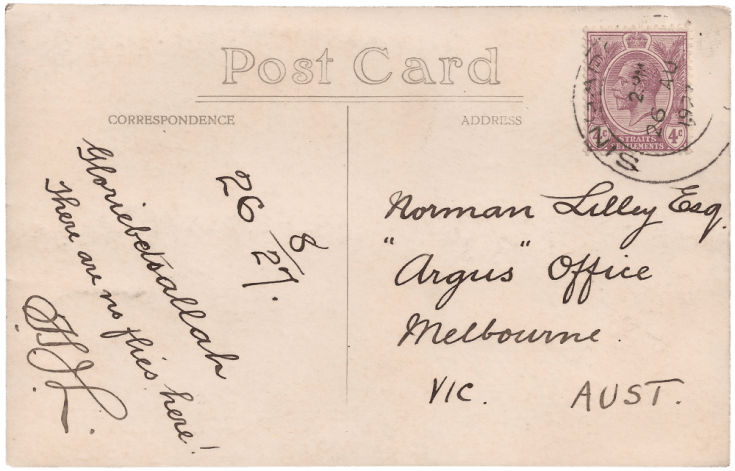 Post Card
CORRESPONDENCE
ADDRESS
STRAITS
SETTLEMENTS
4c 4c
2. PM
26 AU
1927
26 8/27.
Gloriebetoallah
There are no flies here!
Norman Lilley Esq.
"Argus" Office
Melbourne.
VIC. AUST.